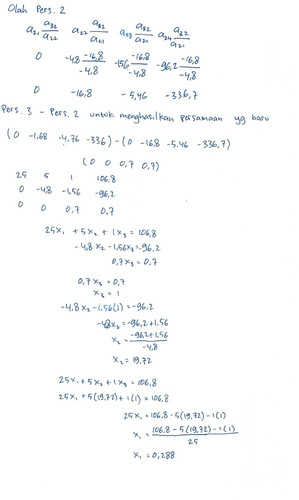 Olah Pers. 2
a₂₁ a₃₂/a₂₂ a₂₂ a₃₂/a₂₁ a₂₃ a₃₂/a₂₁ a₂₄ a₃₂/a₂₁
0 -4,8 -16,8/-4,8 -1,56 -16,8/-4,8 -96,2 -16,8/-4,8
0 -16,8 -5,46 -336,7
Pers. 3 - Pers. 2 untuk menghasilkan persamaan yg baru
(0 -1,68 -4,76 -336) - (0 -16,8 -5,46 -336,7)
(0 0 0,7 0,7)
25 5 1 106,8
0 -4,8 -1,56 -96,2
0 0 0,7 0,7
25x₁ + 5x₂ + 1x₃ = 106,8
-4,8x₂ - 1,56x₃ = -96,2
0,7x₃ = 0,7
0,7x₃ = 0,7
x₃ = 1
-4,8x₂ - 1,56(1) = -96,2
-4,8x₂ = -96,2 + 1,56
x₂ = -96,2 + 1,56/-4,8
x₂ = 19,72
25x₁ + 5x₂ + 1x₃ = 106,8
25x₁ + 5(19,72) + 1(1) = 106,8
25x₁ = 106,8 - 5(19,72) - 1(1)
x₁ = 106,8 - 5(19,72) - 1(1)/25
x₁ = 0,288